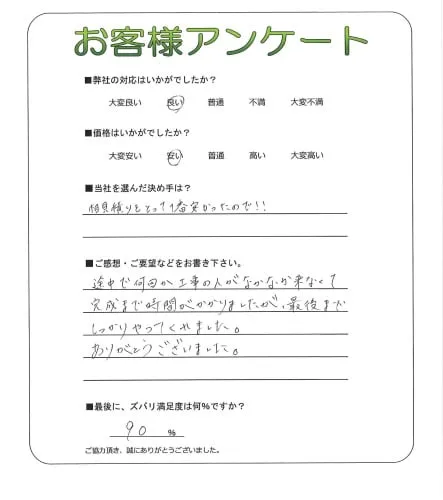 お客様アンケート
■弊社の対応はいかがでしたか？
大変良い 良い 普通 不満 大変不満
■価格はいかがでしたか？
大変安い 安い 普通 高い 大変高い
■当社を選んだ決め手は？
相見積りをとって1番安かったので!!
■ご感想・ご要望などをお書き下さい。
途中で何回か工事の人がなかなか来なくて
完成まで時間がかかりましたが、最後まで
しっかりやってくれました。
ありがとうございました。
■最後に、ズバリ満足度は何％ですか？
90 ％
ご協力頂き、誠にありがとうございました。